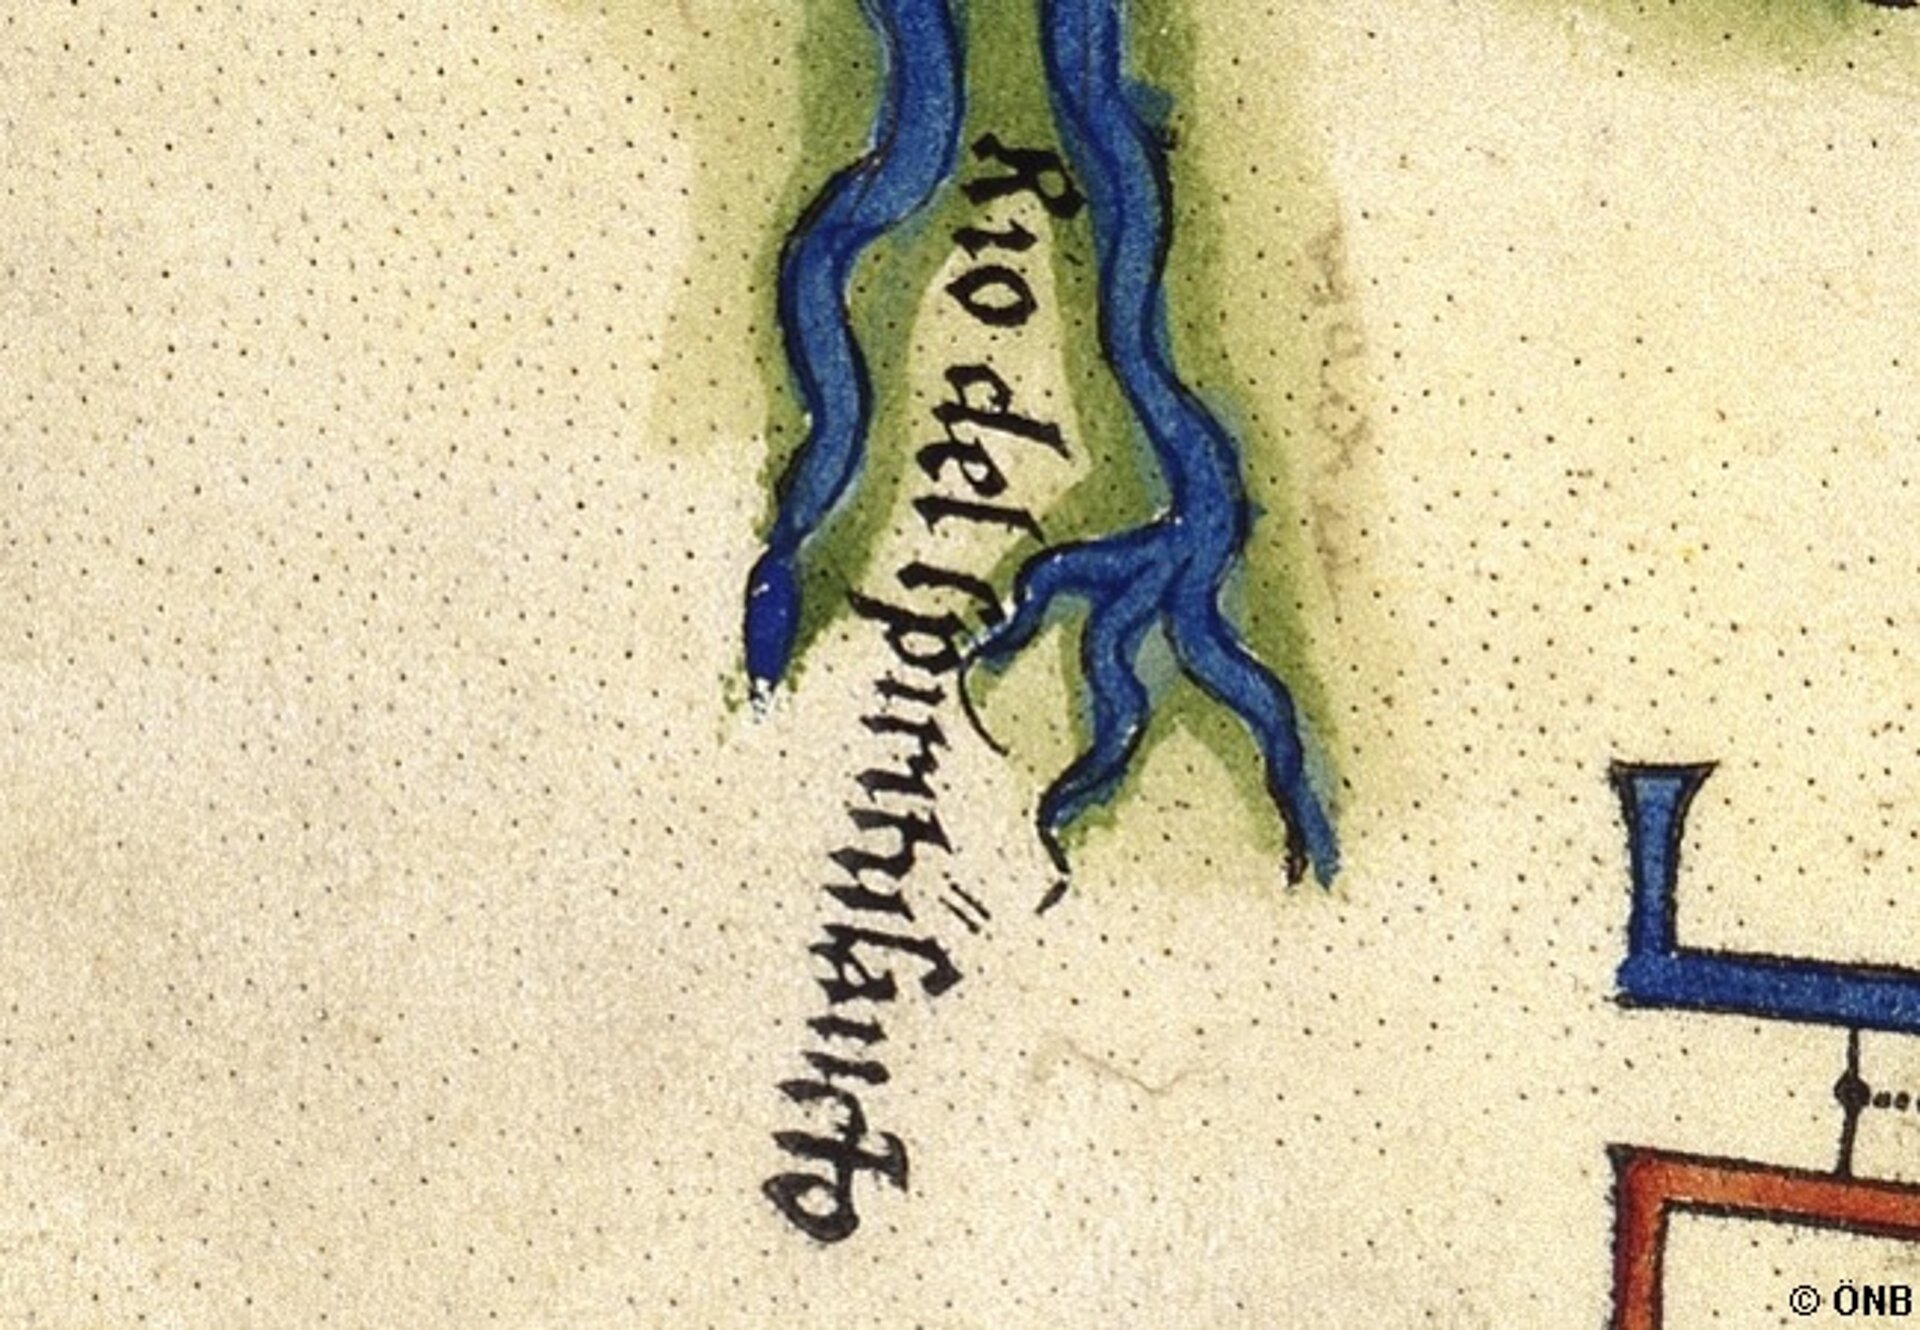 Rio del spiritu santo
© ÖNB